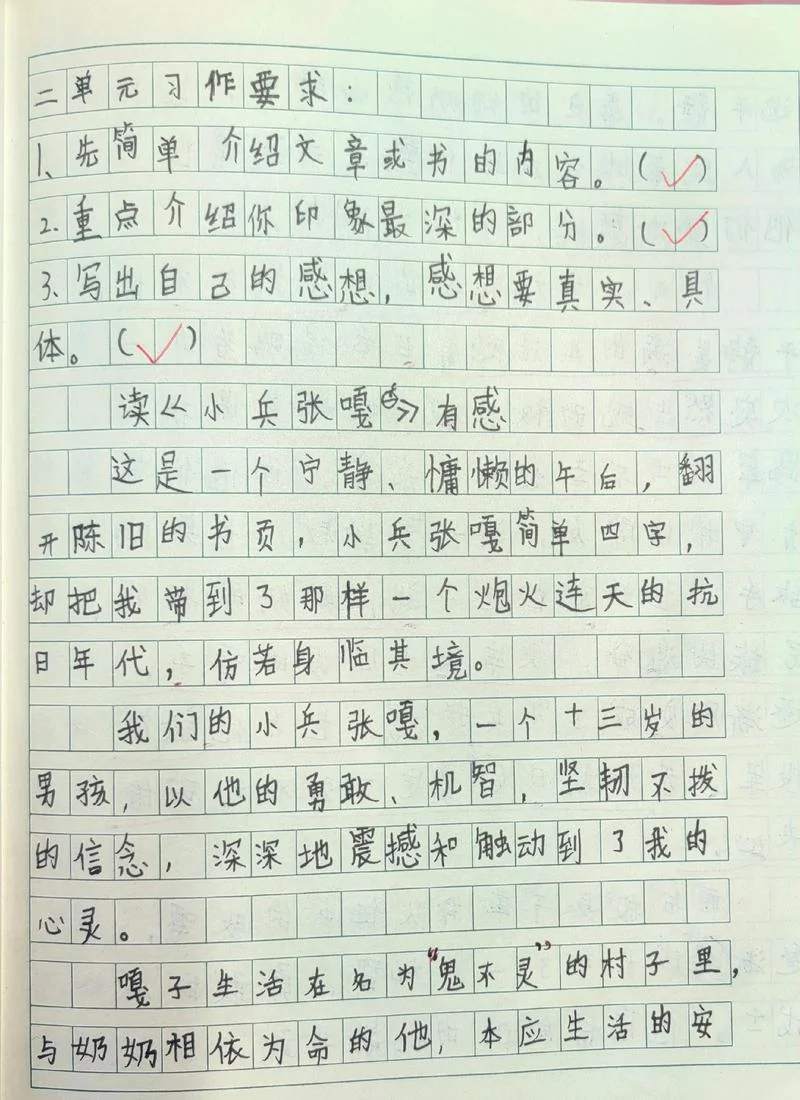 二单元习作要求：
1、先简单介绍文章或书的内容。(✓)
2.重点介绍你印象最深的部分。(✓)
3、写出自己的感想，感想要真实、具
体。(✓)
读《小兵张嘎》有感
这是一个宁静、慵懒的午后，翻
开陈旧的书页，小兵张嘎简单四字，
却把我带到了那样一个炮火连天的抗
日年代，仿若身临其境。
我们的小兵张嘎，一个十三岁的
男孩，以他的勇敢、机智，坚韧不拨
的信念，深深地震撼和触动到了我的
心灵。
嘎子生活在名为“鬼不灵”的村子里，
与奶奶相依为命的他，本应生活的安